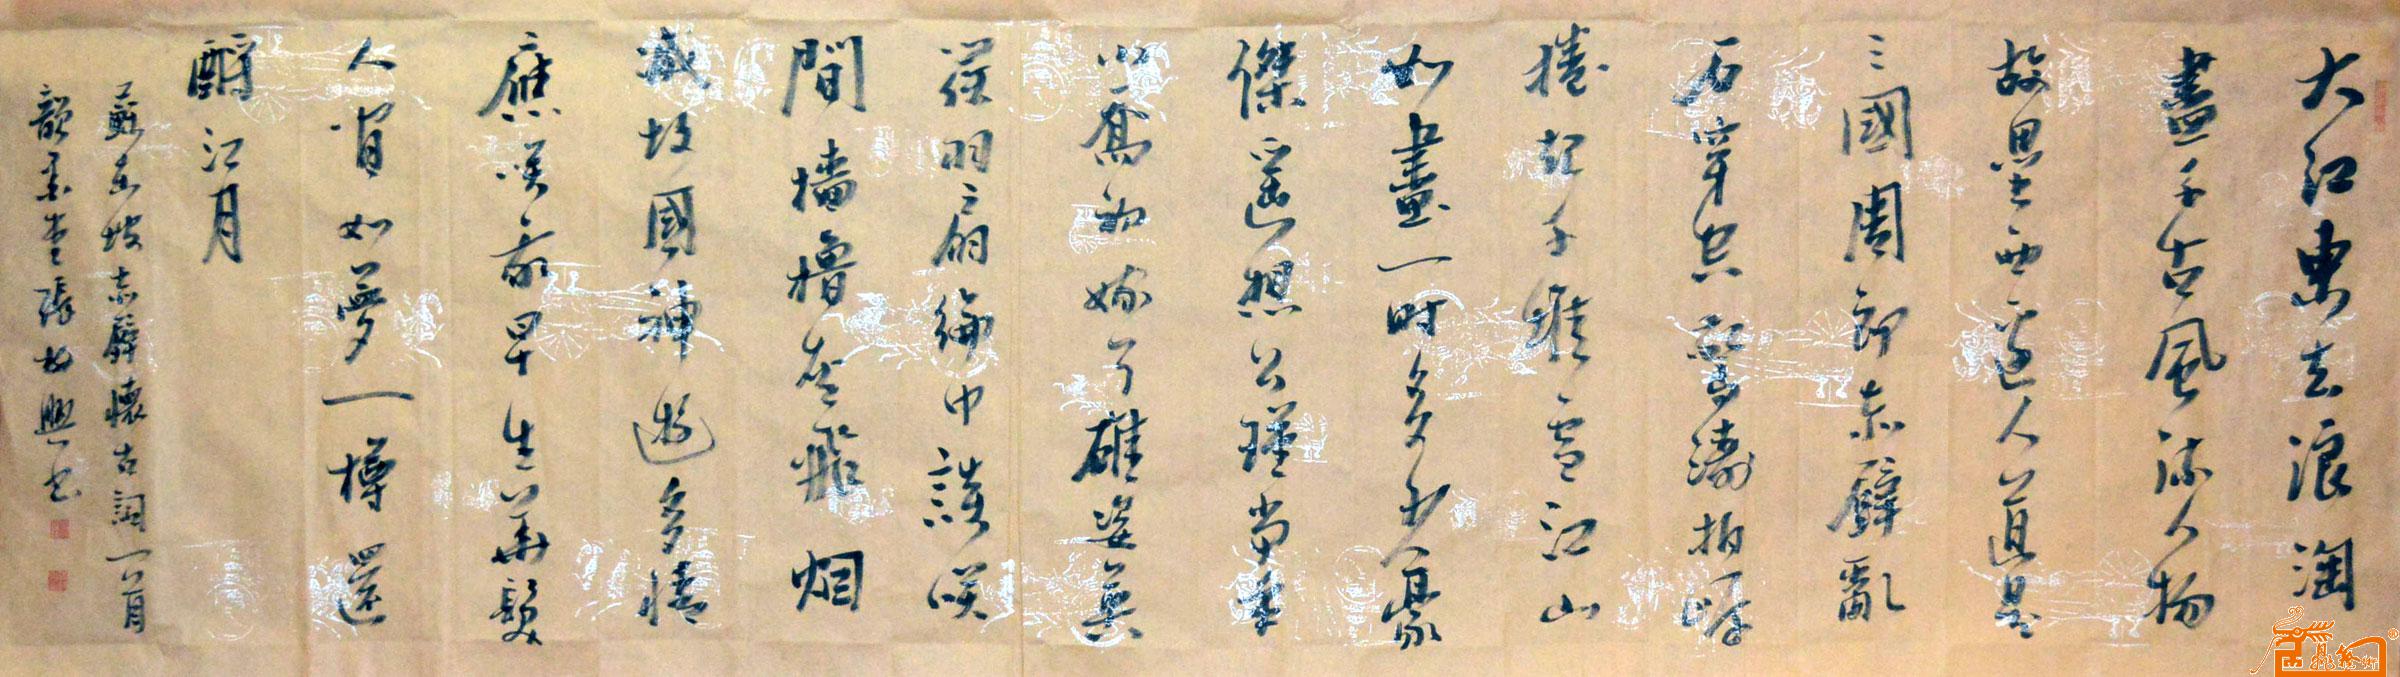 大江東去浪淘
盡千古風流人物
故壘西邊人道是
三國周郎赤壁亂
石穿空驚濤拍岸
捲起千堆雪江山
如畫一時多少豪
傑遙想公瑾當年
小喬初嫁了雄姿英
發羽扇綸巾談笑
間檣櫓灰飛烟
滅故國神遊多情
應笑我早生華髮
人間如夢一樽還
酹江月
蘇東坡赤壁懷古詞一首
張興書